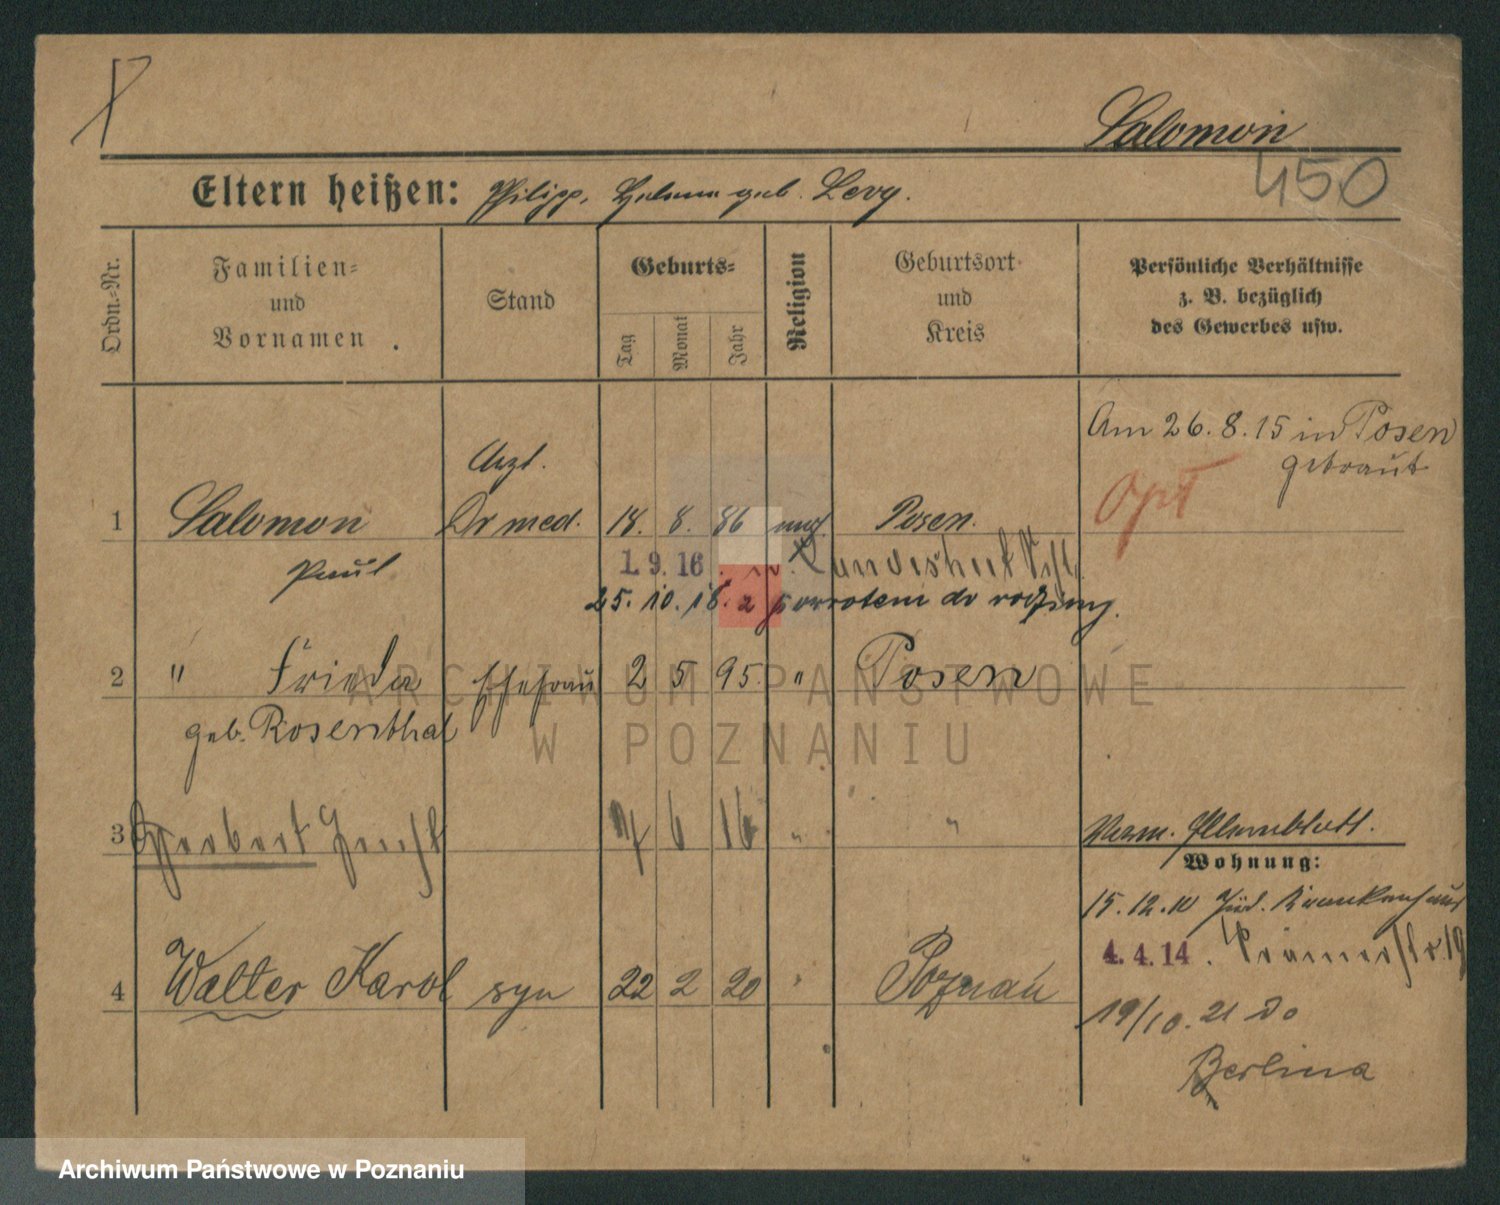 Salomon
450
Eltern heißen: Philipp, Helene geb. Levy.
Ordn.-Nr.
Familien-
und
Vornamen
Stand
Geburts-
Tag
Monat
Jahr
Religion
Geburtsort
und
Kreis
Persönliche Verhältnisse
z. B. bezüglich
des Gewerbes usw.
Am 26.8.15 in Posen
getraut
Opt
Arzt.
1 Salomon Dr med. 18. 8. 86 mos. Posen.
Paul
1.9.16
25.10.18. z powrotem do rodziny.
2 " Frieda Ehefrau 2 5 95. " Posen
geb. Rosenthal
3 Herbert 7 6 16 " "
Verm. Elternblatt.
Wohnung:
15.12.10 Jüd. Krankenhaus
4.4.14.
4 Walter Karol syn 22 2 20 " Poznań
19/10. 21 do
Berlina
ARCHIWUM PAŃSTWOWE
W POZNANIU
Archiwum Państwowe w Poznaniu